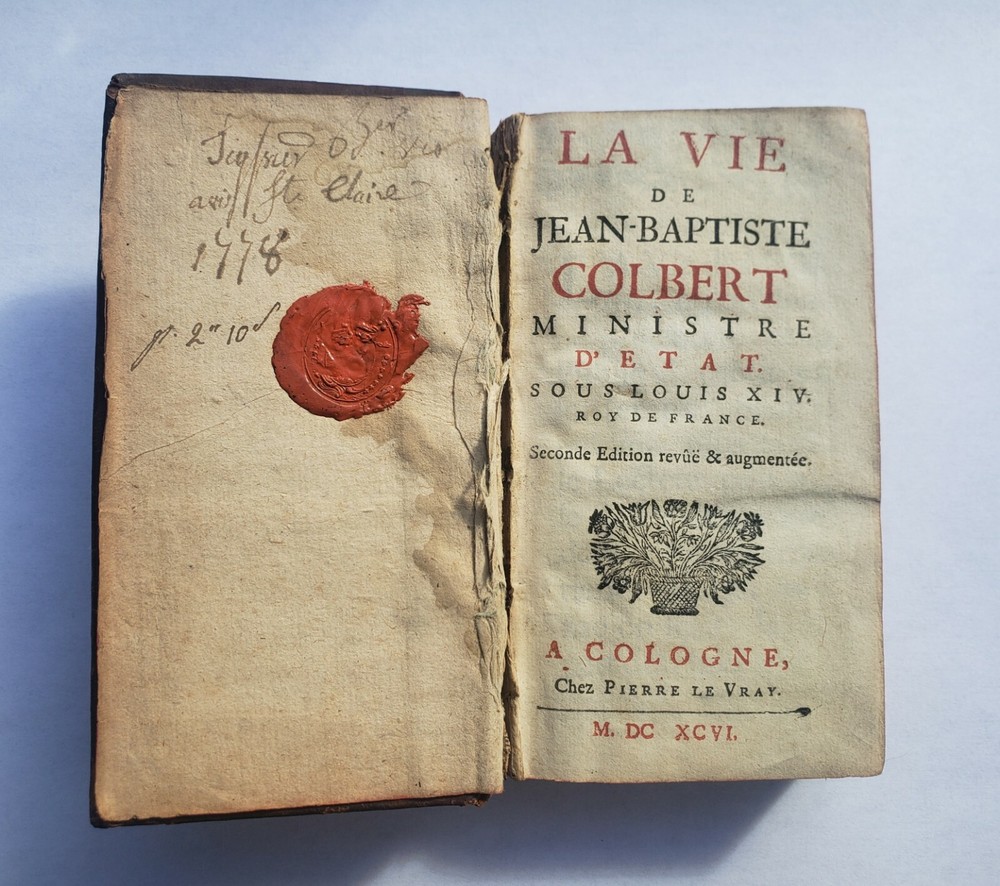 Ste Claire
1778
LA VIE
DE
JEAN-BAPTISTE
COLBERT
MINISTRE
D'ETAT.
SOUS LOUIS XIV.
ROY DE FRANCE.
Seconde Edition revûë & augmentée.
A COLOGNE,
Chez PIERRE LE VRAY.
M. DC XCVI.